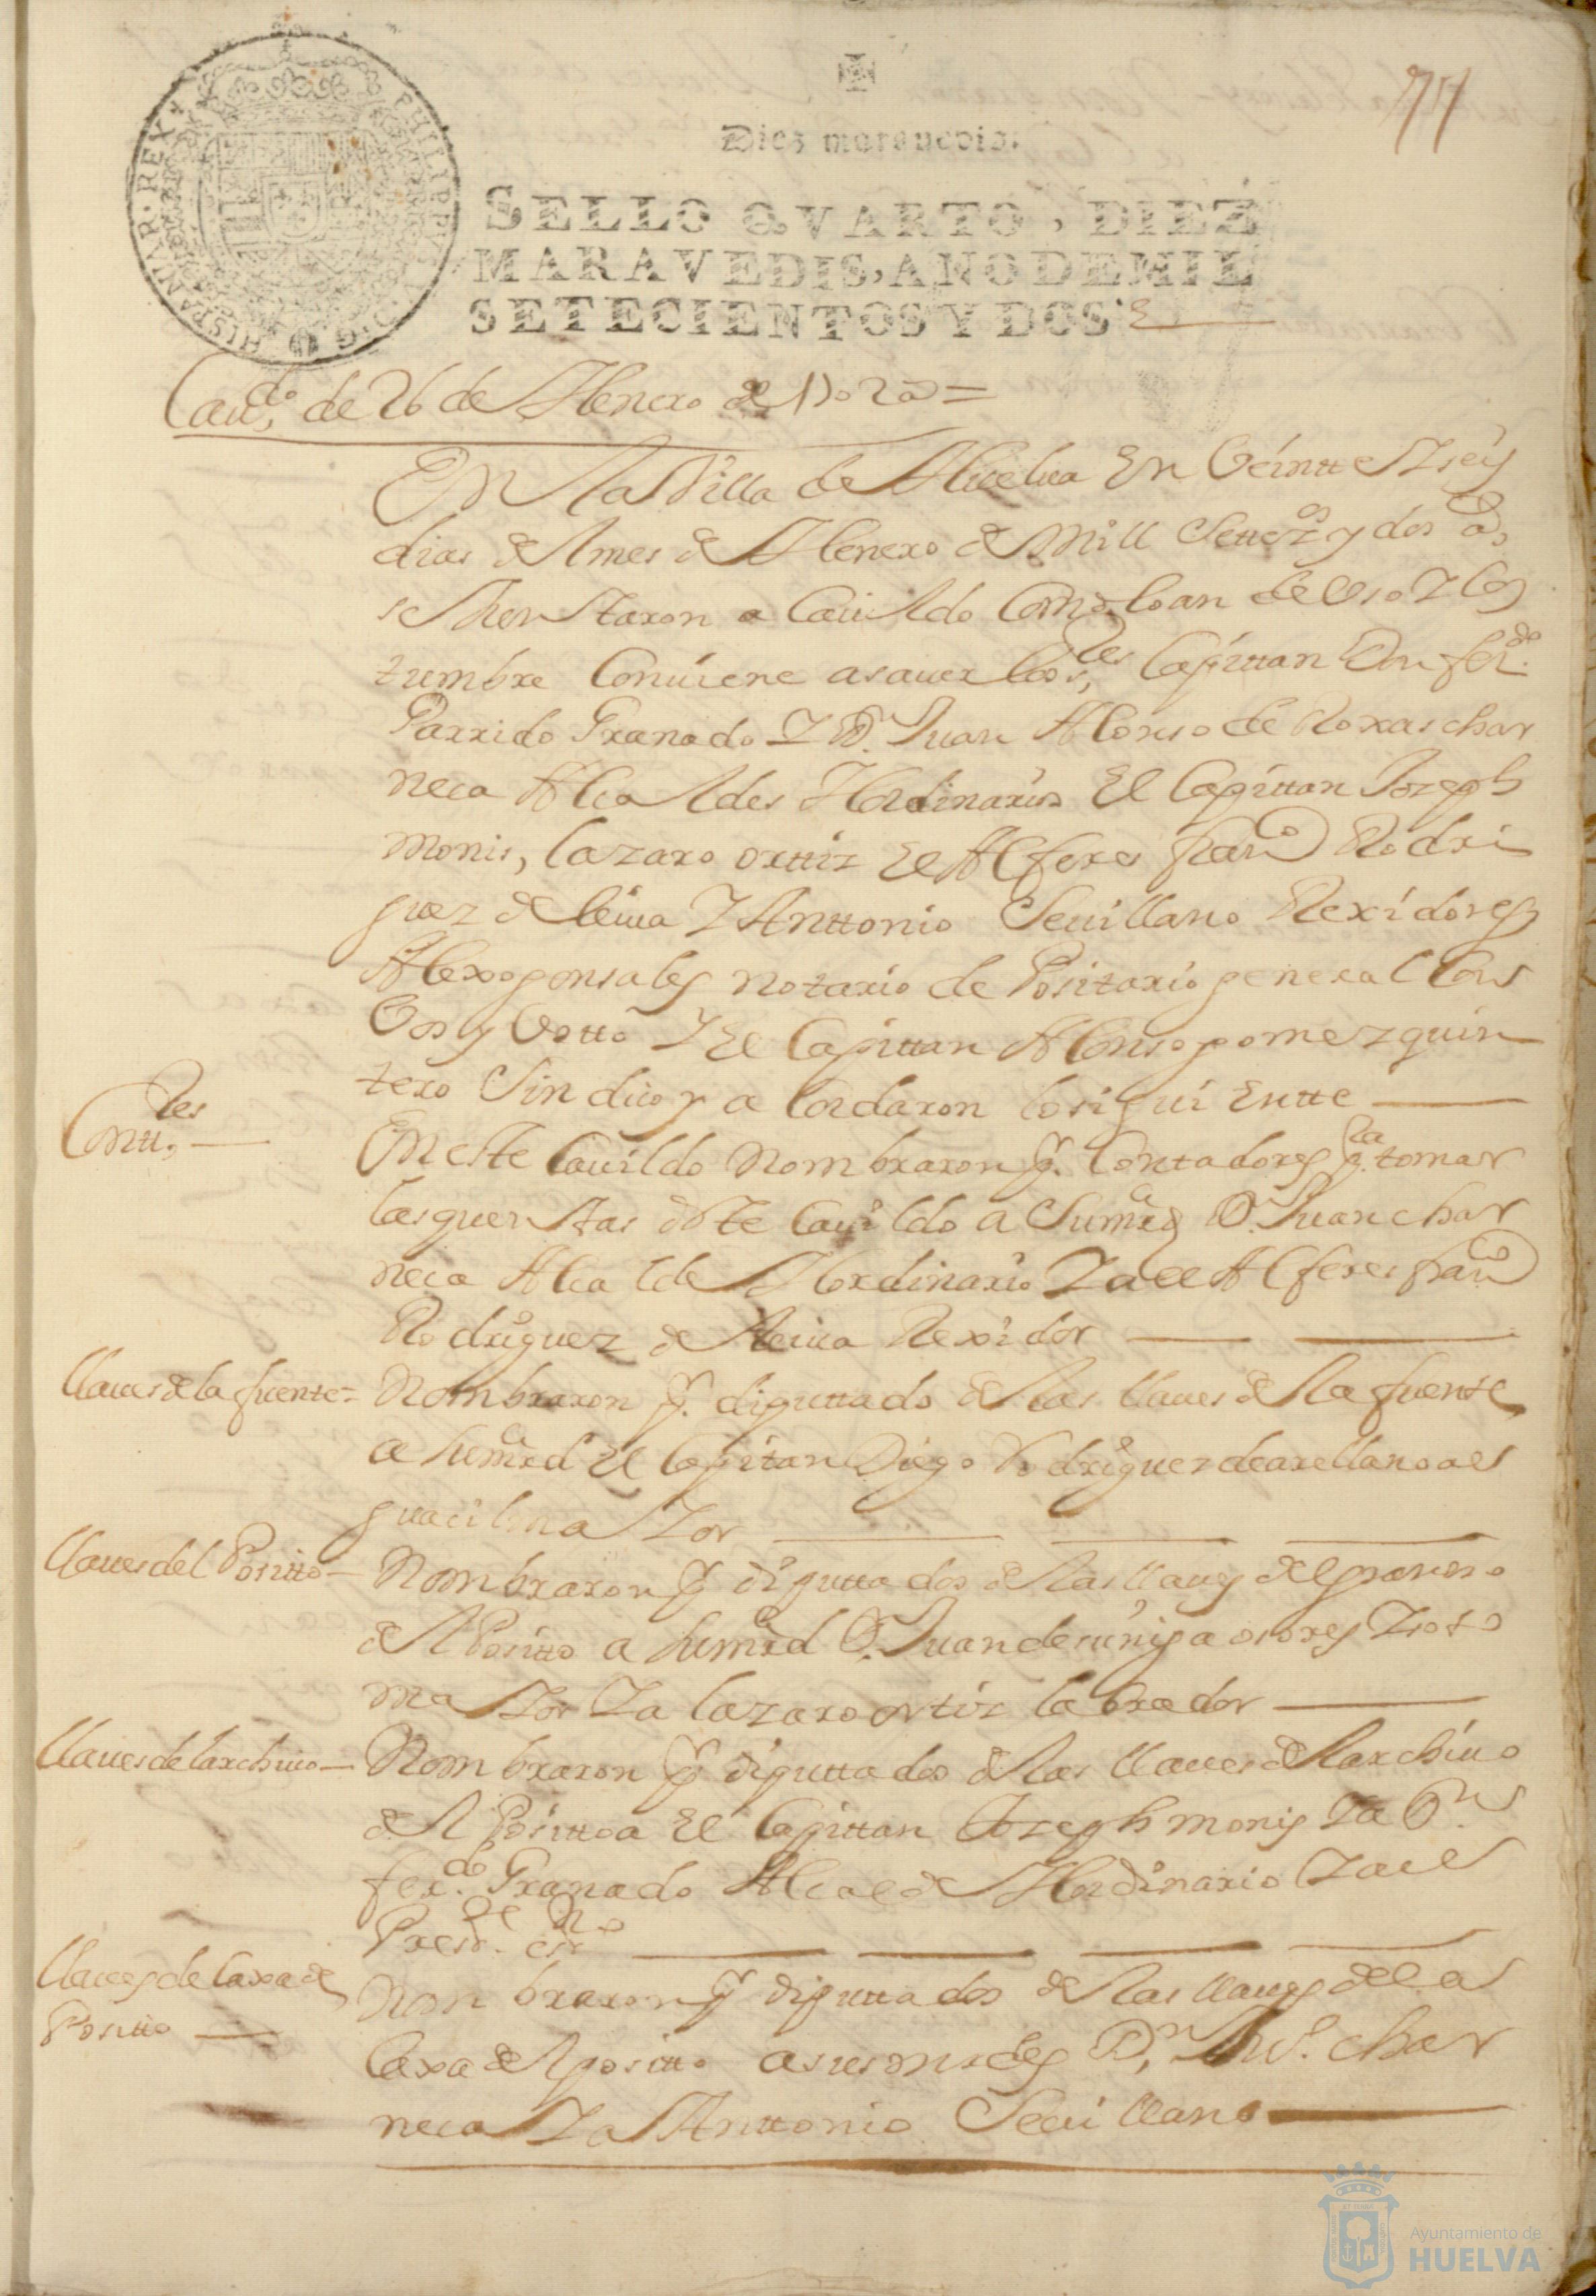 77
Diez marauedis.
SELLO QVARTO, DIEZ
MARAVEDIS, AÑO DE MIL
SETECIENTOS Y DOS.
PHILIPPVS V D G HISPANIAR REX
Caudo. de 26 de Henero de 1702 as =
En la Villa de Huelua En Veintte y seys
dias del mes de Henero de mill Settezos y dos as,
se Juntaron a Cauildo Como loan de Uso Y Cos
tumbre Conuiene a sauer los ses, Capittan Don ferdo.
Garrido Granado Y D. Juan Alonso de Roxas char
neca Alcaldes Hordinarios El Capittan Jozeph
monis, lazaro orttiz El Alferes franco Rodri
guez de leiua Y Anttonio Seuillano Rexidores
Alexo gonsales notario de Positario general Con
Vos y Votto Y El Capittan Alonso gomez quin
tero Sindico y a Cordaron lo siguiEntte
Contt.res
En este Cauildo nombraron p. Contadores pa. tomar
las quentas deste Cauildo a Sumrd D. Juan char
neca Alcalde Hordinario Y a el Alferes franco
Rodriguez de leiua Rexidor
llaues de la fuente =
Nombraron p. diputtado de las llaues de la fuente
a sumrd El Capitan Diego Rodriguez de arellano al
guacil maior
llaues del Positto
Nombraron p diputtados de las llaues del graneso
del Positto a sumrd D. Juan de suniga osores Y soto
maior Y a lazaro ortiz labrador
llaues del archiuo
Nombraron p diputtados de las llaues del archiuo
del Positto a El Capittan Jozeph monis Y a Dn
ferdo. Granado Alcalde Hordinario Y a el
Preste. esno
llaues de Caxa de
Positto
Nonbraron p diputtados de las llaues de la
Caxa del positto a sus mrdes Dn. Juo. char
neca Y a Anttonio Seuillano
Ayuntamiento de
HUELVA